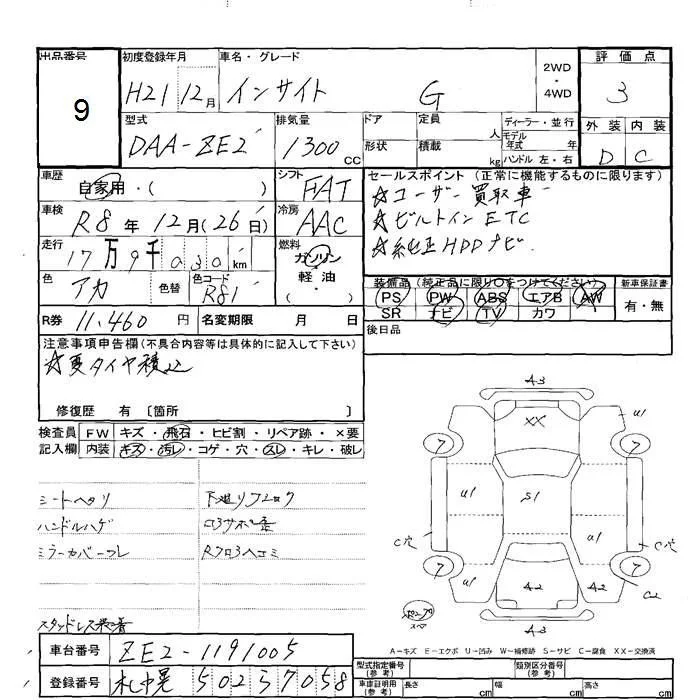 出品番号
9
初度登録年月
H21 12月
車名・グレード
インサイト G
2WD
・
4WD
評価点
3
外装 内装
D C
型式
DAA-ZE2
排気量
1300 CC
ドア
形状
定員 人
積載 kg
ディーラー・並行
モデル年式 年
ハンドル 左・右
車歴
自家用・( )
シフト
FAT
車検
R8年 12月(26日)
冷房
AAC
走行
17万9千030km
燃料
ガソリン
軽油
( ・ )
色
アカ
色替
色コード
R81
セールスポイント(正常に機能するものに限ります)
☆ユーザー買取車
☆ビルトインETC
☆純正HDDナビ
装備品(純正品に限り○をつけてください)
新車保証書
PS PW ABS エアB AW
SR ナビ TV カワ
有・無
R券 11,460円
名変期限 月 日
後日品
注意事項申告欄(不具合内容等は具体的に記入して下さい)
☆夏タイヤ積込
修復歴 有 〔箇所 〕
検査員記入欄
FW キズ・飛石・ヒビ割・リペア跡・×要
内装 キズ・汚レ・コゲ・穴・スレ・キレ・破レ
シートヘタリ
ハンドルハゲ
ミラーカバーワレ
スタッドレス装着
下廻りフロク
ロ3サポ歪
Rフロ3ヘコミ
A3
XX
U1
7
7
U1
S1
U1
C穴
C穴
7
7
U1
A2
A2
C2
A3
A-キズ E-エクボ U-凹み W-補修跡 S-サビ C-腐食 XX-交換済
車台番号
ZE2-1191005
登録番号
札幌 502 37058
型式指定番号(参考)
類別区分番号(参考)
車検証記載(参考)
長さ cm
幅 cm
高さ cm